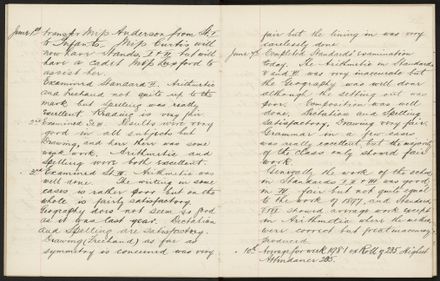 June 1st transfer Miss Anderson from St. I
to Infants. Miss Curtis will
now have Standards I & II but will
have a cadet Miss Lexford to
assist her.
Examined Standard V. Arithmetic
and Freehand not quite up to the
mark but Spelling was really
excellent. Reading is very fair
2nd Examined St. IV. Results were very
good in all subjects but
Drawing, and here there was some
weak work. Arithmetic and
Spelling were both excellent.
2nd Examined St. III. Arithmetic was
well done. The writing in some
cases is rather poor but on the
whole is fairly satisfactory.
Geography does not seem so good
as it was last year. Dictation
and Spelling are satisfactory.
Drawing (Freehand) as far as
symmetry is concerned was very
fair but the lining in was very
carelessly done.
June 7th Completed Standards' examination
today. The Arithmetic in Standards
V and VI was very inaccurate but
the Geography was well done
although the setting out was
poor. Composition was well
done. Dictation and Spelling
satisfactory. Drawing very fair.
Grammar in a few cases
was really excellent, but the majority
of the class only showed fair
work.
Generally the work of the school
in Standards I, II & III was good,
in IV fair but not quite equal
to the work of 1897, and Standards
V & VI showed average work except
in Arithmetic where the methods
were correct but great inaccuracy
produced.
10th Average for week 198.1 ex Roll of 235. Highest
Attendance 205.